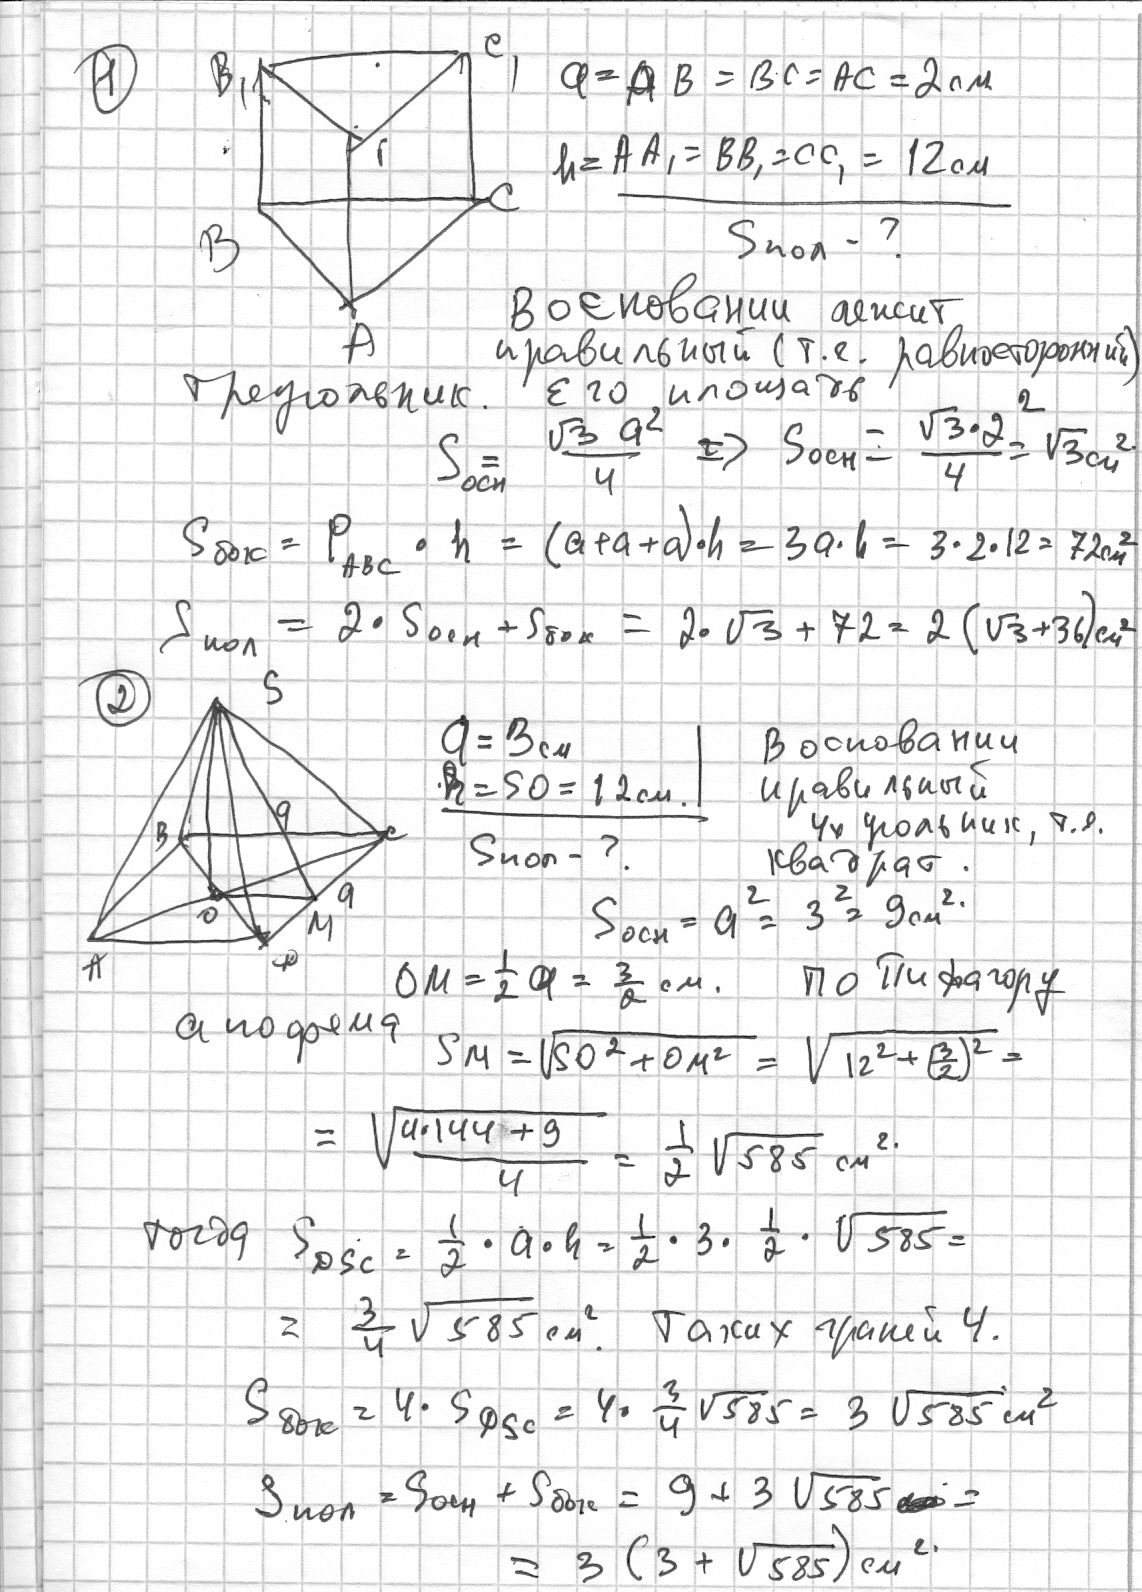 1
B₁ C₁
a = AB = BC = AC = 2 см
h = AA₁ = BB₁ = CC₁ = 12 см
C
B
Sпол - ?
A
В основании лежит
правильный (т.е. равносторонний)
треугольник. Его площадь
Sосн = √3 a²/4 => Sосн = √3·2²/4 = √3 см²
Sбок = P_ABC · h = (a+a+a)·h = 3a·h = 3·2·12 = 72 см²
Sпол = 2·Sосн + Sбок = 2·√3 + 72 = 2(√3+36) см²
2
S
a = 3 см
h = SO = 12 см.
Sпол - ?.
В основании
правильный
4х угольник, т.е.
квадрат.
B a C
O M a
A D
Sосн = a² = 3² = 9 см².
OM = 1/2 a = 3/2 см. По Пифагору
апофема
SM = √(SO² + OM²) = √(12² + (3/2)²) =
= √((4·144 + 9)/4) = 1/2 √585 см².
тогда S_DSC = 1/2 · a · h = 1/2 · 3 · 1/2 · √585 =
= 3/4 √585 см². Таких граней 4.
Sбок = 4 · S_DSC = 4 · 3/4 √585 = 3 √585 см²
Sпол = Sосн + Sбок = 9 + 3 √585 =
= 3 (3 + √585) см².